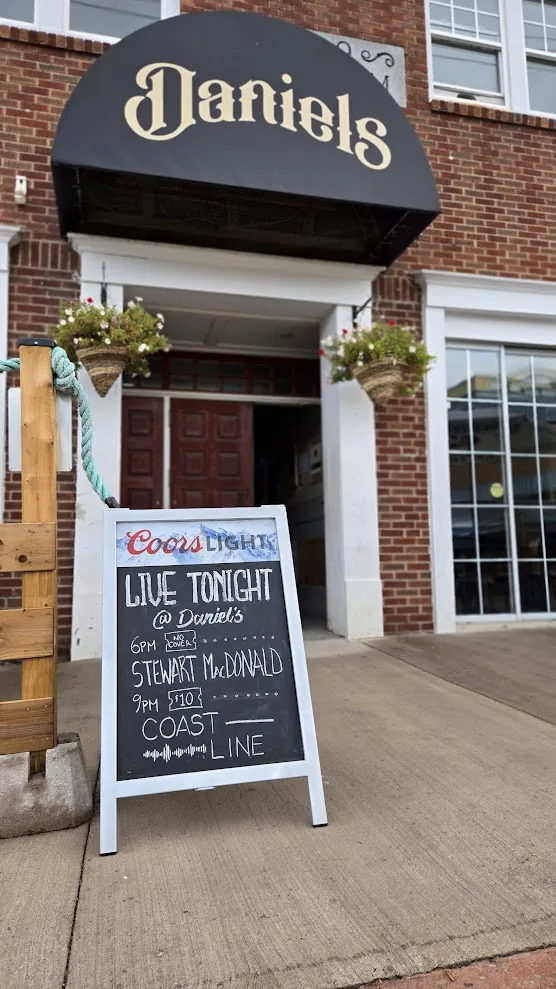 Daniels
Coors LIGHT
LIVE TONIGHT
@ Daniel's
6PM NO COVER
STEWART MACDONALD
9PM $10
COAST
LINE